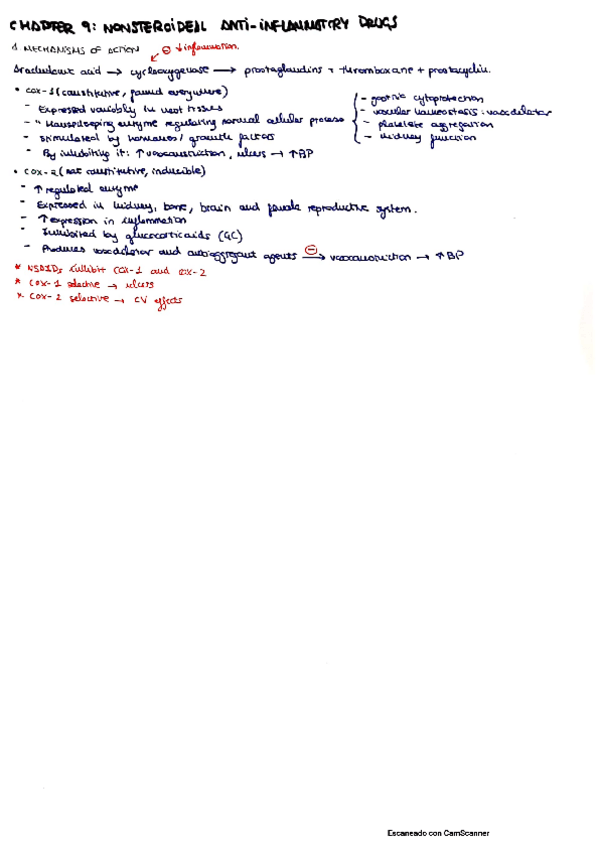 CHAPTER 9: NONSTEROIDEAL ANTI-INFLAMMATORY DRUGS
1 MECHANISMS OF ACTION ⊖ ↓ inflammation.
Arachidonic acid → cyclooxygenase → prostaglandins + thromboxane + prostacyclin.
• COX-1 (constitutive, found everywhere)
- Expressed variably in most tissues
- "Housekeeping enzyme regulating normal cellular process
- Stimulated by hormones/ growth factors
- By inhibiting it: ↑ vasoconstriction, ulcers → ↑BP
- gastric cytoprotection
- vascular homeostasis: vasodilator
- platelet aggregation
- kidney function
• COX-2 (not constitutive, inducible)
- ↑ regulated enzyme
- Expressed in kidney, bone, brain and female reproductive system.
- ↑ expression in inflammation
- Inhibited by glucocorticoids (GC)
- Produces vasodilator and antiaggregant agents ⊖→ vasoconstriction → ↑BP
* NSAIDs inhibit COX-1 and COX-2
* COX-1 selective → ulcers
* COX-2 selective → CV effects
Escaneado con CamScanner